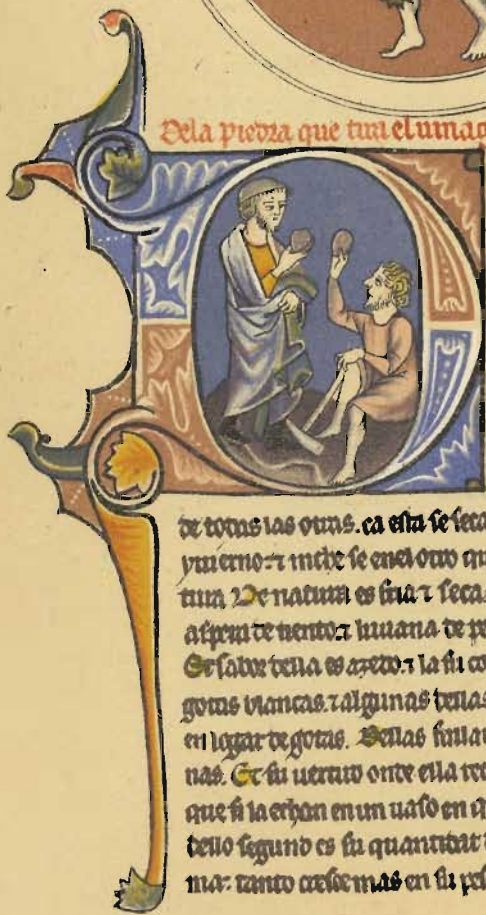 Dela piedra que tira el uinag
de todas las otras. ca esta se seca
yuierno. ⁊ inche se enel otro que
tura De natura es fria ⁊ seca.
aspera de tiento. ⁊ liuiana de pe
Et sabor della es azedo. ⁊ la su co
gotas blancas. ⁊ algunas dellas
en logar de gotas. Dellas
nas. Et su uertud onde ella rec
que si la echan en un uaso en q
dello segund es su quantitat
mas tanto cresce mas en su pes